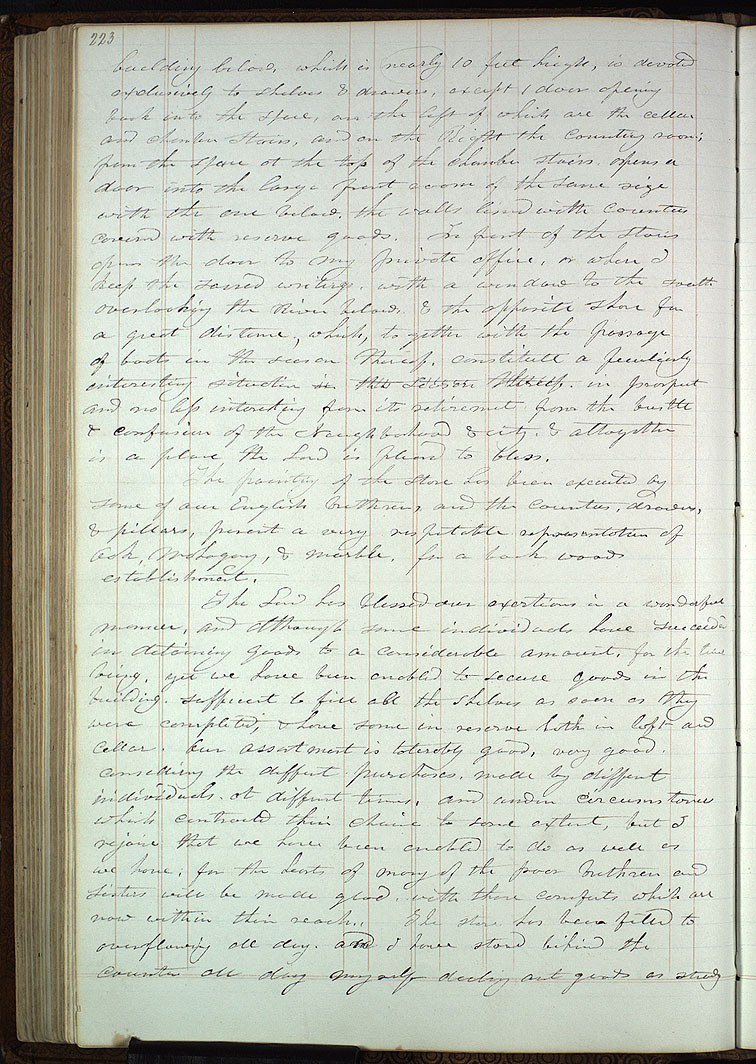 223
building below, which is nearly 10 feet high, is devoted
exclusively to shelves & drawers, except 1 door opening
back into the space, on the left of which are the cellar
and chamber stairs, and on the Right the Counting room;
from the space at the top of the chamber stairs opens a
door into the large front room of the same size
with the one below, the walls lined with Counters
covered with reserve goods. In front of the Stairs
opens the door to my private office, or where I
keep the sacred writings, with a window to the South
overlooking the River below, & the opposite Shore for
a great distance, which, together with the passage
of boats in the season thereof, constitute a peculiarly
interesting situation in the season thereof. in prospect
and no less interesting from its retirement from the bustle
& confusion of the Neighborhood & city, & altogether
is a place the Lord is pleased to bless.
The painting of the Store has been executed by
some of our English brethren, and the Counter, drawers,
& pillars, present a very respectable representation of
Oak, Mahogany, & marble, for a back woods
establishment.
The Lord has blessed our exertions in a wonderful
manner, and although some individuals have succeeded
in detaining goods to a considerable amount, for the time
being, yet we have been enabled to secure goods in the
building, sufficient to fill all the Shelves as soon as they
were completed, & have some in reserve both in loft and
cellar. Our assortment is tolerably good, very good,
considering the different purchases, made by different
individuals, at different times, and under circumstances
which controuled their choice to some extent, but I
rejoice that we have been enabled to do as well as
we have; for the hearts of many of the poor brethren and
sisters will be made glad, with those comforts which are
now within their reach.. The store has been filled to
overflowing all day, and I have stood behind the
Counter all day myself dealing out goods as steady